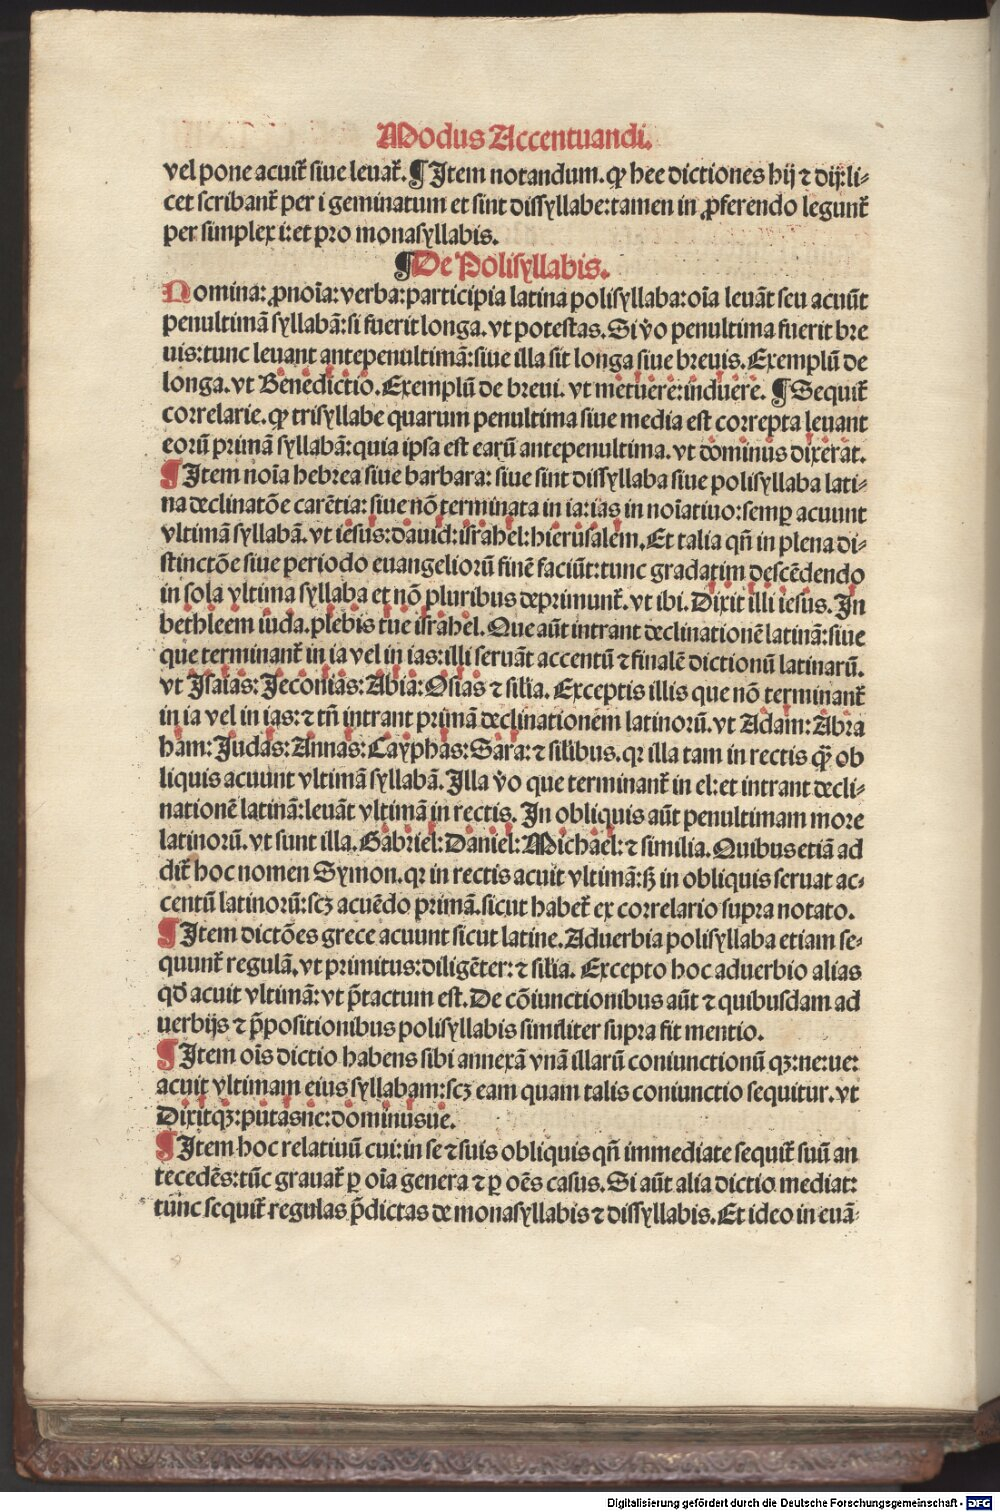 Modus Accentuandi.
vel pone acuit᷑ siue leuat᷑. ¶ Item notandum. ꝙ hee dictiones hij ⁊ dij: li-
cet scribant᷑ per i geminatum et sint dissyllabe: tamen in ꝓferendo legunt᷑
per simplex i: et pro monasyllabis.
¶ De Polisyllabis.
Nomina: ꝓnoīa: verba: participia latina polisyllaba: oīa leuāt seu acuūt
penultimā syllabā: si fuerit longa. vt potestas. Si v̄o penultima fuerit bre
uis: tunc leuant antepenultimā: siue illa sit longa siue breuis. Exemplū de
longa. vt Benedictio. Exemplū de breui. vt metuere: induere. ¶ Sequit᷑
correlarie. ꝙ trisyllabe quarum penultima siue media est correpta leuant
eorū primā syllabā: quia ipsa est earū antepenultima. vt dominus dixerat.
¶ Item noīa hebrea siue barbara: siue sint dissyllaba siue polisyllaba lati-
na declinatōe carētia: siue nō terminata in ia: ias in noīatiuo: semꝑ acuunt
vltimā syllabā. vt iesus: dauid: israhel: hierusalem. Et talia qn̄ in plena di-
stinctōe siue periodo euangeliorū finē faciūt: tunc gradatim descēdendo
in sola vltima syllaba et nō pluribus deprimunt᷑. vt ibi. Dixit illi iesus. In
bethleem iuda. plebis tue israhel. Que aūt intrant declinationē latinā: siue
que terminant᷑ in ia vel in ias: illi seruāt accentū ⁊ finalē dictionū latinarū.
vt Isaias: Jeconias: Abia: Osias ⁊ silia. Exceptis illis que nō terminant᷑
in ia vel in ias: ⁊ tn̄ intrant primā declinationem latinorū. vt Adam: Abra
ham: Judas: Annas: Cayphas: Sara: ⁊ silibus. qꝛ illa tam in rectis q̄ꝫ ob
liquis acuunt vltimā syllabā. Illa v̄o que terminant᷑ in el: et intrant decli-
nationē latinā: leuāt vltimā in rectis. In obliquis aūt penultimam more
latinorū. vt sunt illa. Gabriel: Daniel: Michael: ⁊ similia. Quibus etiā ad
dit᷑ hoc nomen Symon. qꝛ in rectis acuit vltimā: sꝫ in obliquis seruat ac-
centū latinorū: scꝫ acuēdo primā. sicut habet᷑ ex correlario supra notato.
¶ Item dictōes grece acuunt sicut latine. Aduerbia polisyllaba etiam se-
quunt᷑ regulā. vt primitus: diligēter: ⁊ silia. Excepto hoc aduerbio alias
qď acuit vltimā: vt p̄tactum est. De cōiunctionibus aūt ⁊ quibusdam ad
uerbijs ⁊ p̄positionibus polisyllabis similiter supra fit mentio.
¶ Item oīs dictio habens sibi annexā vnā illarū coniunctionū qꝫ: ne: ue:
acuit vltimam eius syllabam: scꝫ eam quam talis coniunctio sequitur. vt
Dixitqꝫ: putasne: dominusue.
¶ Item hoc relatiuū cui: in se ⁊ suis obliquis qn̄ immediate sequit᷑ suū an
tecedēs: tūc grauat᷑ ꝑ oīa genera ⁊ ꝑ oēs casus. Si aūt alia dictio mediat:
tunc sequit᷑ regulas p̄dictas de monasyllabis ⁊ dissyllabis. Et ideo in euā-
Digitalisierung gefördert durch die Deutsche Forschungsgemeinschaft - DFG